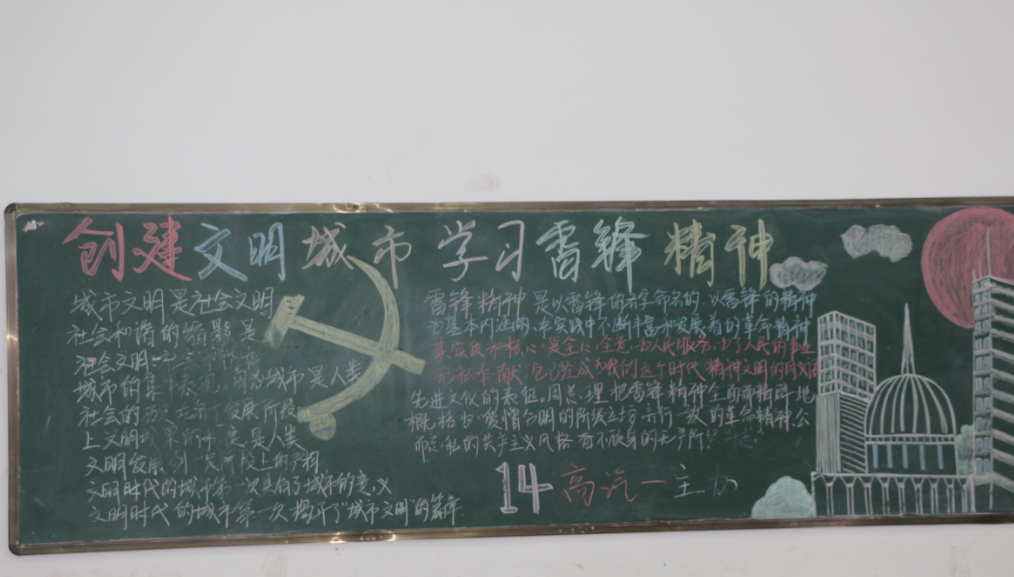 创建文明城市 学习雷锋精神
城市文明是社会文明
社会和谐的缩影是
社会文明
城市的集中表现，因为城市是人类
社会的 发展阶段
上文明 的 是人类
文明发展到一 阶段上的产物
文明时代的城市第一次具有了城市的意义
文明时代的城市第一次揭开了城市文明的篇章
雷锋精神 是以雷锋的名字命名的，以雷锋的精神
为基本内涵的，在实践中不断丰富和发展着的革命精神
其实质和核心是全心全意为人民服务，为了人民的事业
无私奉献，它已经成为我们这个时代精神文明的同义语
先进文化的表征。周总理把雷锋精神全面而精辟地
概括为“爱憎分明的阶级立场、言行一致的革命精神、公
而忘私的共产主义风格、奋不顾身的无产阶
14 高汽一 主办